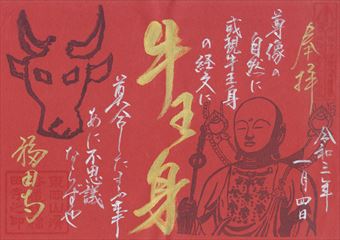 奉拝
尊像の
自然に
或現牛王身
の経文に
牛王身
冥合したまふ事
あに不思議
ならずや
福田寺
令和三年
一月四日